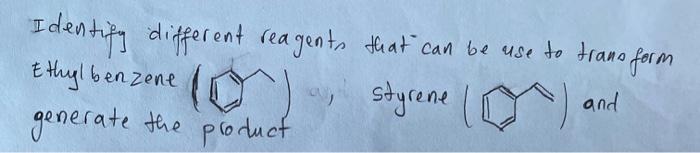 Identify different reagents that can be use to transform
Ethylbenzene ( ) , styrene ( ) and
generate the product